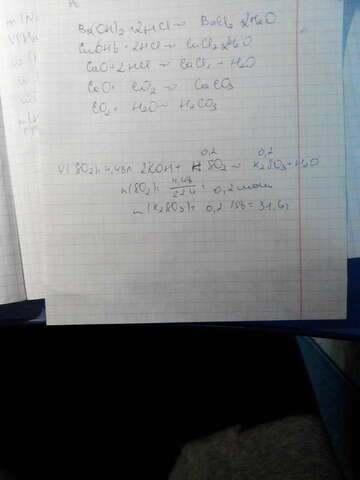 Ba(OH)2 + 2HCl = BaCl2 + 2H2O
Cu(OH)2 + 2HCl = CuCl2 + 2H2O
CaO + 2HCl = CaCl2 + H2O
CaO + CO2 = CaCO3
CO2 + H2O = H2CO3
0,2 0,2
V(SO2) = 4,48л 2KOH + SO2 = K2SO3 + H2O
n(SO2) = 4,48 / 22,4 = 0,2 моль
m(K2SO3) = 0,2 · 158 = 31,6г